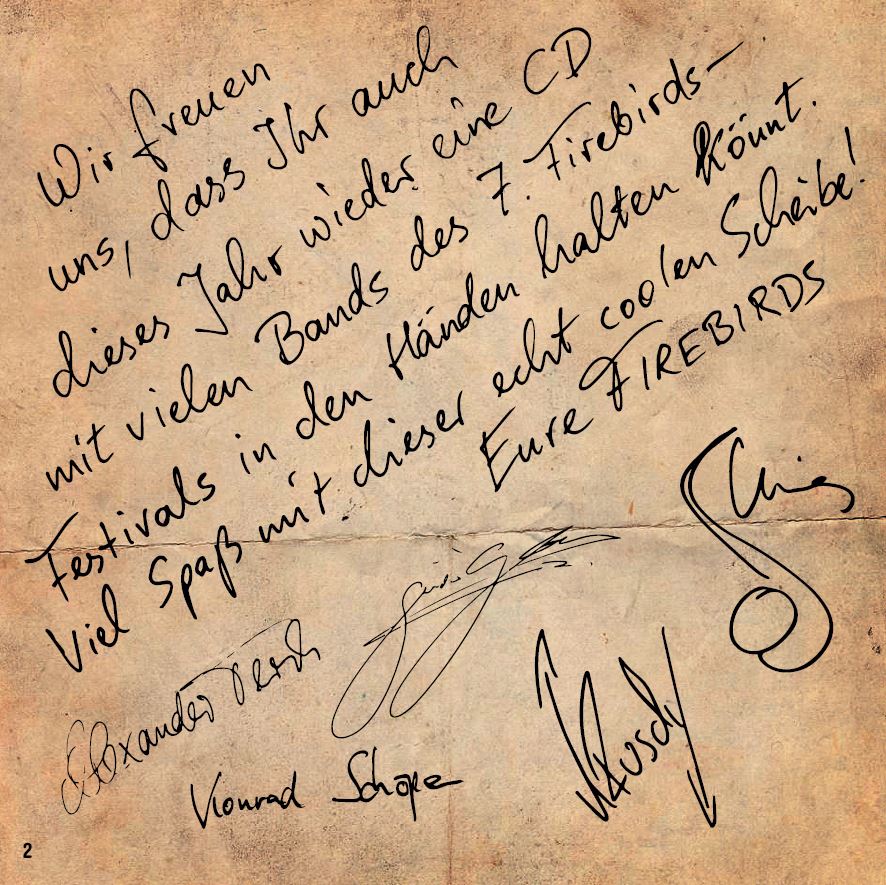 Wir freuen
uns, dass Ihr auch
dieses Jahr wieder eine CD
mit vielen Bands des 7. Firebirds-
Festivals in den Händen halten könnt.
Viel Spaß mit dieser echt coolen Scheibe!
Eure FIREBIRDS
Alexander
Konrad
2